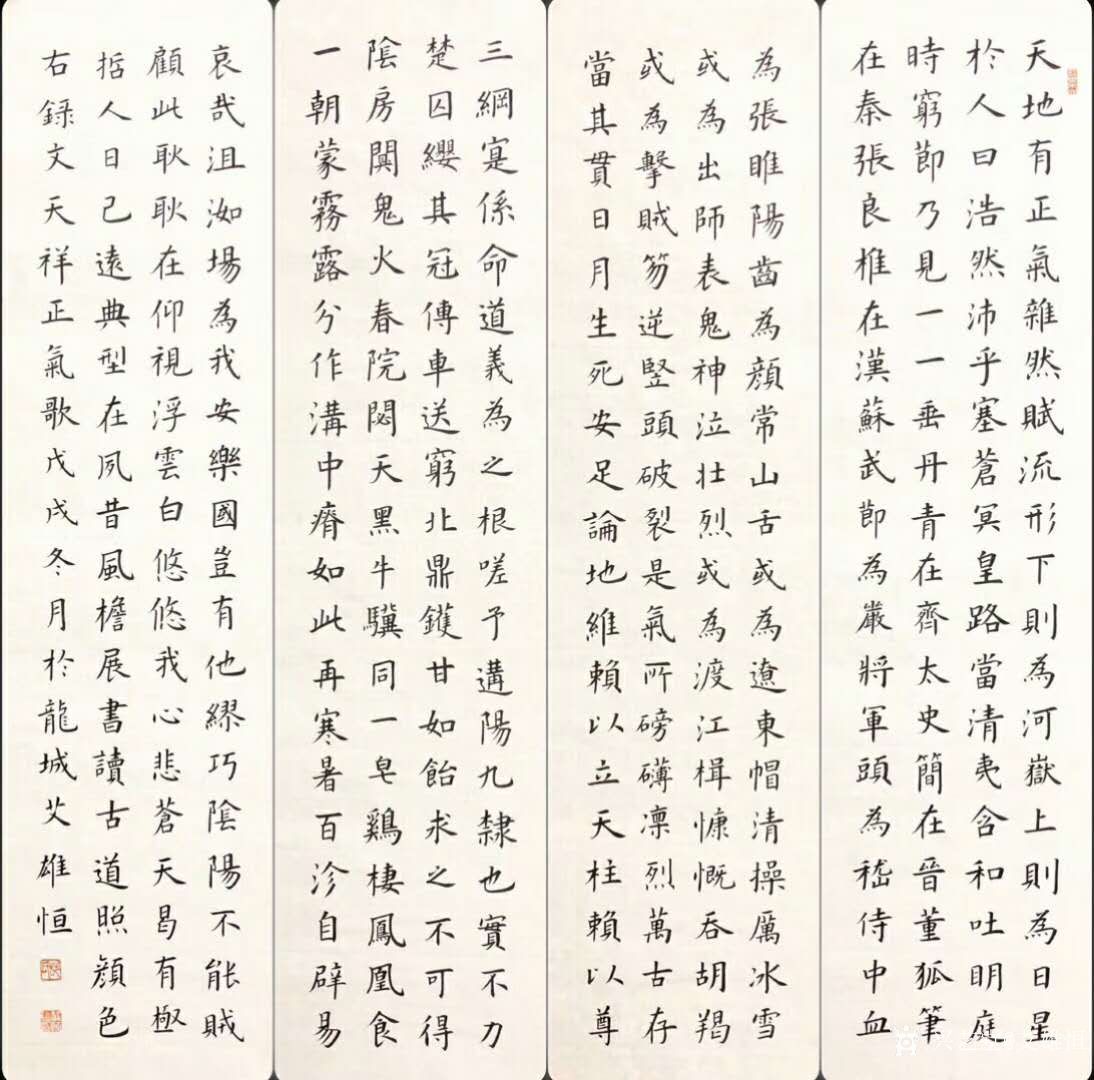 天地有正氣雜然賦流形下則為河嶽上則為日星
於人曰浩然沛乎塞蒼冥皇路當清夷含和吐明庭
時窮節乃見一一垂丹青在齊太史簡在晉董狐筆
在秦張良椎在漢蘇武節為嚴將軍頭為嵇侍中血
為張睢陽齒為顏常山舌或為遼東帽清操厲冰雪
或為出師表鬼神泣壯烈或為渡江楫慷慨吞胡羯
或為擊賊笏逆竪頭破裂是氣所磅礴凜烈萬古存
當其貫日月生死安足論地維賴以立天柱賴以尊
三綱寔係命道義為之根嗟予遘陽九隸也實不力
楚囚纓其冠傳車送窮北鼎鑊甘如飴求之不可得
陰房闃鬼火春院閟天黑牛驥同一皂鷄棲鳳凰食
一朝蒙霧露分作溝中瘠如此再寒暑百沴自辟易
哀哉沮洳場為我安樂國豈有他繆巧陰陽不能賊
顧此耿耿在仰視浮雲白悠悠我心悲蒼天曷有極
哲人日已遠典型在夙昔風檐展書讀古道照顏色
右錄文天祥正氣歌戊戌冬月於龍城艾雄恒